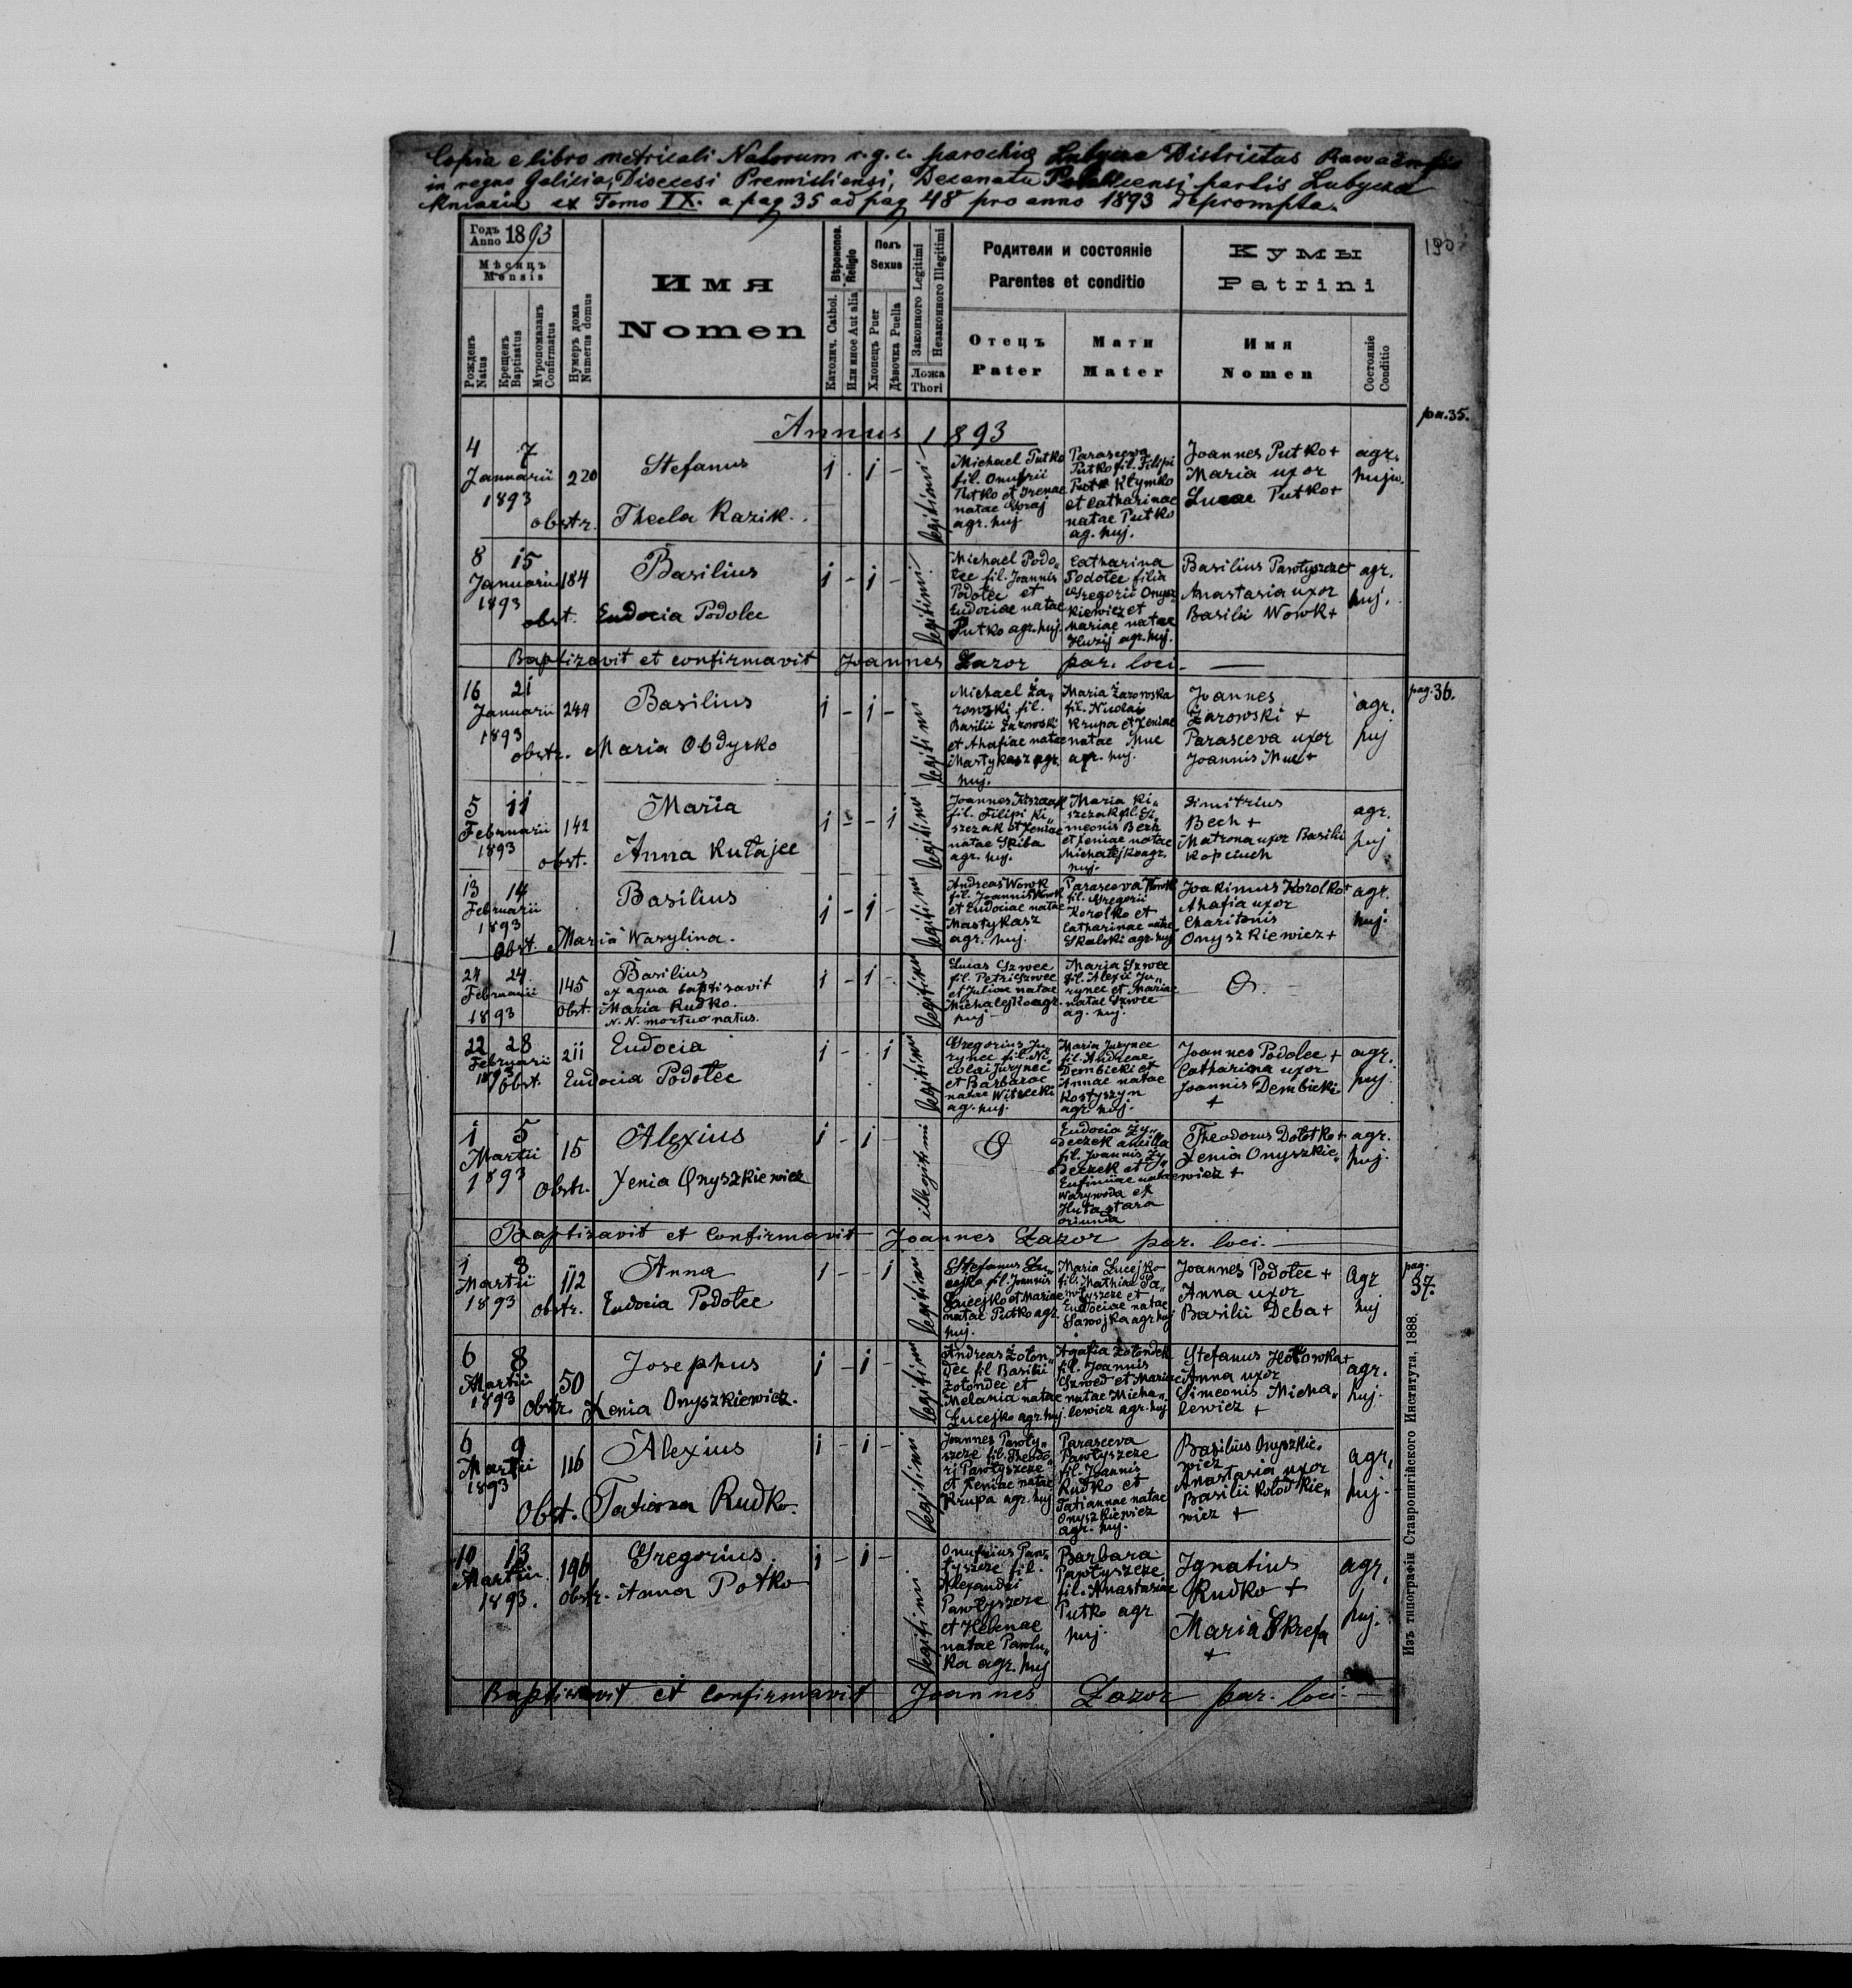 Copia e libro metricali Natorum r. g. c. parochiæ Lubycza Districtus Rawaensis
in regno Galiciæ, Diœcesi Premisliensi, Decanatu partis Lubycza
Kniazie ex Tomo IX. a pag 35 ad pag 48 pro anno 1893 deprompta.
Годъ Anno 1893
Мѣсяцъ Mensis
Рожденъ Natus
Крещенъ Baptisatus
Мѵропомазанъ Confirmatus
Нумеръ дома Numerus domus
Имя
Nomen
Вѣроиспов. Religio
Католич. Cathol.
Или иное Aut alia
Полъ Sexus
Хлопецъ Puer
Дѣвочка Puella
Законного Legitimi
Незаконного Illegitimi
Ложа Thori
Родители и состояніе
Parentes et conditio
Отецъ
Pater
Мати
Mater
Кумы
Patrini
Имя
Nomen
Состояніе Conditio
190
pa. 35.
Annus 1893
4 7
Januarii 220
1893
Stefanus
obstr. Thecla Kazik.
1 . 1 -
legitimi
Michael Putko
fil. Onufrii
Putko et Irenae
natae Goraj
agr. huj
Parasceva
Putko fil. Filipi
Putko Kłymko
et Catharinae
natae Putko
ag. huj.
Joannes Putko +
Maria uxor
Lucae Putko +
agr.
hujus.
8 15
Januarii 184
1893
Basilius
obst. Eudocia Podolec
1 - 1 -
legitimi
Michael Podo„
lec fil. Joannis
Podolec et
Eudociae natae
Putko agr. huj.
Catharina
Podolec filia
Gregorii Onysz„
kiewicz et
Mariae natae
Huzij agr. huj.
Basilius Pawłyszcze +
Anastasia uxor
Basilii Wowk +
agr.
huj.
Baptizavit et confirmavit Joannes Łazor par. loci. —
16 21
Januarii 244
1893
Basilius
obstr. Maria Obdyrko
1 - 1 -
legitimi
Michael Ża„
rowski fil.
Basilii Żarowski
et Ahafiae natae
Mastykasz agr.
huj.
Maria Żarowska
fil. Nicolai
Krupa et Xeniae
natae Muc
agr. huj.
Joannes
Żarowski +
Parasceva uxor
Joannis Muc +
agr.
huj
pag. 36.
5 11
Februarii 142
1893
Maria
obst. Anna Kułajec
1 - - 1
legitimi
Joannes Kiszczak
fil. Filipi Ki„
szczak et Xeniae
natae Skiba
agr. huj.
Maria Ki„
szczak fil. Si„
meonis Bech
et Xeniae natae
Michalejko agr.
huj.
Dimitrius
Bech +
Matrona uxor Basilii
Kopciuch
agr.
huj
13 14
Februarii
1893
Basilius
Obst. Maria Warylina.
1 - 1 -
legitimi
Andreas Wowk
fil. Joannis Wowk
et Eudociae natae
Mastykasz
agr. huj.
Parasceva Wowk
fil. Gregorii
Korolko et
Catharinae natae
Skalski agr. huj
Joakimus Korolko +
Ahafia uxor
Charitonis
Onyszkiewicz +
agr.
huj.
24 24
Februarii 145
1893
Basilius
ex aqua baptisavit
obst. Maria Rudko.
N. N. mortuo natus.
1 - 1 -
legitimi
Lucas Szwec
fil. Petri Szwec
et Julian natae
Michalejko agr.
huj
Maria Szwec
fil. Alexii Ju„
rynec et Mariae
natae Szwec
ag. huj.
22 28
Februarii 211
1893
Eudocia
obst. Eudocia Podolec
1 - . 1
legitimi
Gregorius Ju„
rynec fil. Ni„
colai Jurynec
et Barbarae
natae Witecki
ag. huj.
Maria Jurynec
fil. Andreae
Dembicki et
Annae natae
Kostyszyn
agr. huj.
Joannes Podolec +
Catharina uxor
Joannis Dembicki
+
agr.
huj
1 5
Martii 15
1893
Alexius
Obstr. Xenia Onyszkiewicz
1 - 1 -
illegitimi
Eudocia Zy„
deczek ancilla
fil. Joannis Zy„
deczek et
Eufimiae natae
Warywoda et
Huta stara
oriunda
Theodorus Dolotko +
Xenia Onyszkie„
wicz +
agr.
huj.
Baptizavit et confirmavit Joannes Łazor par. loci. —
1 8
Martii 112
1893
Anna
obstr. Eudocia Podolec
1 - - 1
legitimi
Stefanus Łu„
cejko fil. Joannis
Łucejko et Mariae
natae Putko agr.
huj.
Maria Łucejko
fil. Mathiae Pa„
włyszcze et
Eudociae natae
Sawojka agr. huj
Joannes Podolec +
Anna uxor
Basilii Deba +
Agr
huj
pag.
37.
6 8
Martii 50
1893
Josephus
Obstr. Xenia Onyszkiewicz.
1 - 1 -
legitimi
Andreas Żołon„
dec fil Basilii
Żołondec et
Melania natae
Łucejko agr. huj.
Agafia Żołondek
fil. Joannis
Szwed et Mariae
natae Micha„
lewicz agr. huj
Stefanus Hołowka +
Anna uxor
Simeonis Micha„
lewicz +
agr.
huj.
6 9
Martii 116
1893
Alexius
Obst. Tatianna Rudko.
1 - 1 -
legitimi
Joannes Pawły„
szcze fil. Theodo„
ri Pawłyszcze
et Xeniae natae
Krupa agr. huj
Parasceva
Pawłyszcze
fil. Joannis
Rudko et
Tatiannae natae
Onyszkiewicz
agr. huj.
Basilius Onyszkie„
wicz
Anastasia uxor
Basilii Kołodkie„
wicz +
agr.
huj.
10 13
Martii 196
1893.
Gregorius
obstr. Anna Potko
1 - 1 -
legitimi
Onufrius Paw„
łyszcze fil.
Alexandri
Pawłyszcze
et Helenae
natae Pawlu„
ka agr. huj
Barbara
Pawłyszcze
fil. Anastasiae
Putko agr
huj.
Ignatius
Rudko +
Maria Skrefa
+
agr.
huj.
Baptizavit et confirmavit Joannes Łazor par. loci. —
Изъ типографіи Ставропигійского Института, 1888.